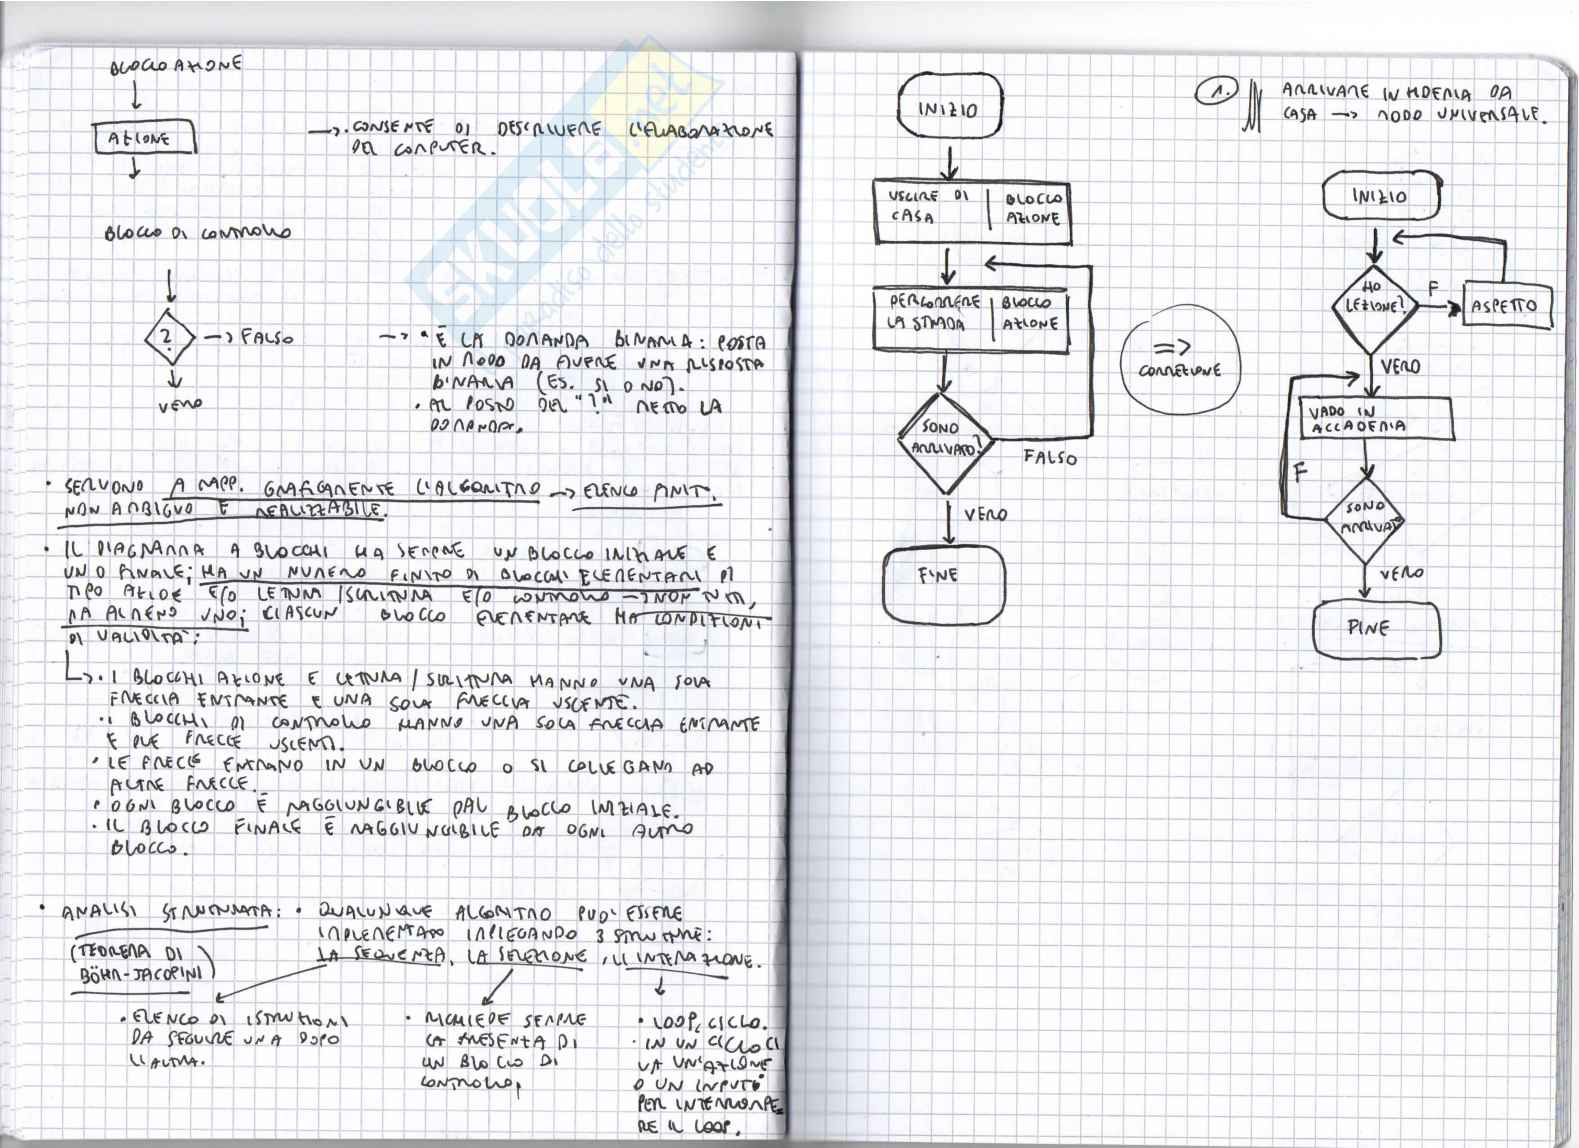 BLOCCO AZIONE
AZIONE
→ · CONSENTE DI DESCRIVERE L'ELABORAZIONE
DEL COMPUTER.
BLOCCO DI CONTROLLO
?
→ FALSO
VERO
→ · È LA DOMANDA BINARIA: POSTA
IN MODO DA AVERE UNA RISPOSTA
BINARIA (ES. SI O NO).
· AL POSTO DEL "?" METTO LA
DOMANDA.
· SERVONO A RAPP. GRAFICAMENTE L'ALGORITMO → ELENCO FINIT.
NON AMBIGUO E REALIZZABILE.
· IL DIAGRAMMA A BLOCCHI HA SEMPRE UN BLOCCO INIZIALE E
UNO FINALE; HA UN NUMERO FINITO DI BLOCCHI ELEMENTARI DI
TIPO AZIOE E/O LETTURA/SCRITTURA E/O CONTROLLO → NON TUTTI,
MA ALMENO UNO; CIASCUN BLOCCO ELEMENTARE HA CONDIZIONI
DI VALIDITÀ:
· I BLOCCHI AZIONE E LETTURA/SCRITTURA HANNO UNA SOLA
FRECCIA ENTRANTE E UNA SOLA FRECCIA USCENTE.
· I BLOCCHI DI CONTROLLO HANNO UNA SOLA FRECCIA ENTRANTE
E DUE FRECCE USCENTI.
· LE FRECCE ENTRANO IN UN BLOCCO O SI COLLEGANO AD
ALTRE FRECCE.
· OGNI BLOCCO È RAGGIUNGIBILE DAL BLOCCO INIZIALE.
· IL BLOCCO FINALE È RAGGIUNGIBILE DA OGNI ALTRO
BLOCCO.
· ANALISI STRUTTURATA: · QUALUNQUE ALGORITMO PUO' ESSERE
IMPLEMENTATO IMPIEGANDO 3 STRUTTURE:
LA SEQUENZA, LA SELEZIONE, L'INTERAZIONE.
(TEOREMA DI
BÖHM-JACOPINI)
· ELENCO DI ISTRUZIONI
DA SEGUIRE UNA DOPO
L'ALTRA.
· RICHIEDE SEMPRE
LA PRESENZA DI
UN BLOCCO DI
CONTROLLO.
· LOOP, CICLO.
· IN UN CICLO CI
VA UN'AZIONE
O UN INPUT
PER INTERROMPE-
RE IL LOOP.
SKUOLA.net
paradiso dello studente
INIZIO
USCIRE DI CASA | BLOCCO AZIONE
PERCORRERE LA STRADA | BLOCCO AZIONE
SONO
ARRIVATO?
FALSO
VERO
FINE
⇒
CORREZIONE
1. ARRIVARE IN MDEMIA DA
CASA → MODO UNIVERSALE.
INIZIO
HO
LEZIONE?
F
ASPETTO
VERO
VADO IN
ACCADEMIA
F
SONO
ARRIVATO
VERO
FINE